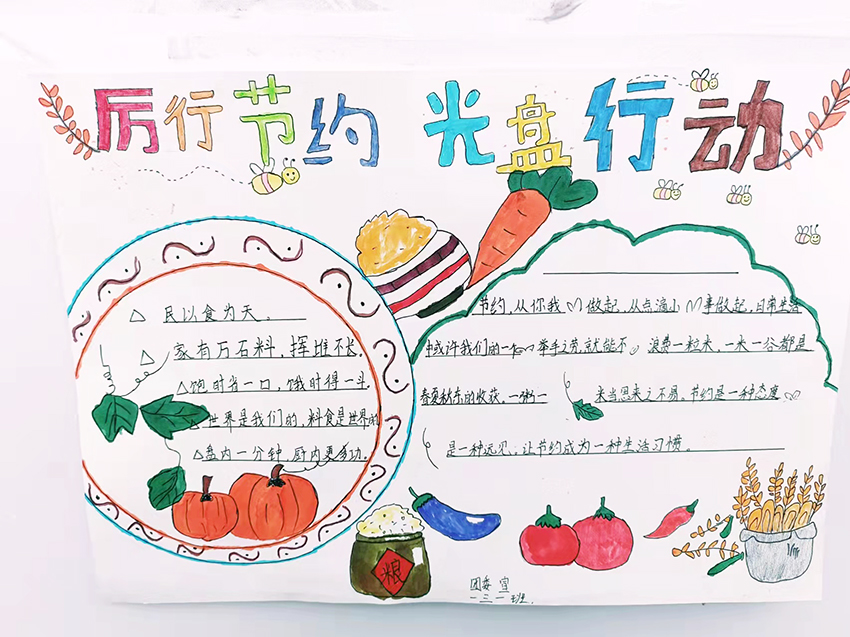 厉行节约 光盘行动
民以食为天。
家有万石料，挥堆不长。
饱时省一口，饿时得一斗.
世界是我们的，料食是世界的
盘内一分钟，厨内更多功.
节约，从你我做起，从点滴小事做起，日常生活
中或许我们的一个举手之劳，就能不浪费一粒米，一米一谷都是
春夏秋冬的收获，一粥一 来当思来之不易。节约是一种态度
是一种远见，让节约成为一种生活习惯。
粮
团委宣
一三一班.